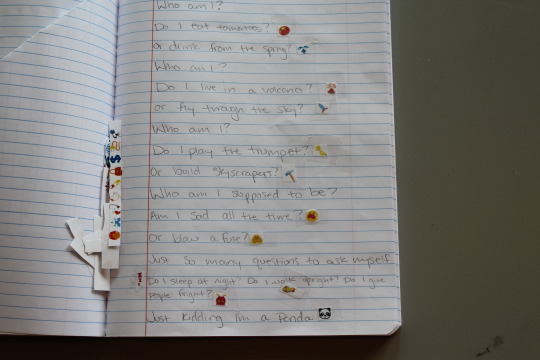 Who am I?
Do I eat tomatoes?
Or drink from the spring?
Who am I?
Do I live in a volcano?
or fly through the sky?
Who am I?
Do I play the trumpet?
Or build skyscrapers?
Who am I supposed to be?
Am I Sad all the time?
Or blow a fuse?
Just so many questions to ask myself
Do I sleep at night? Do I walk upright? Do I give
people fright?
Just kidding I'm a Panda